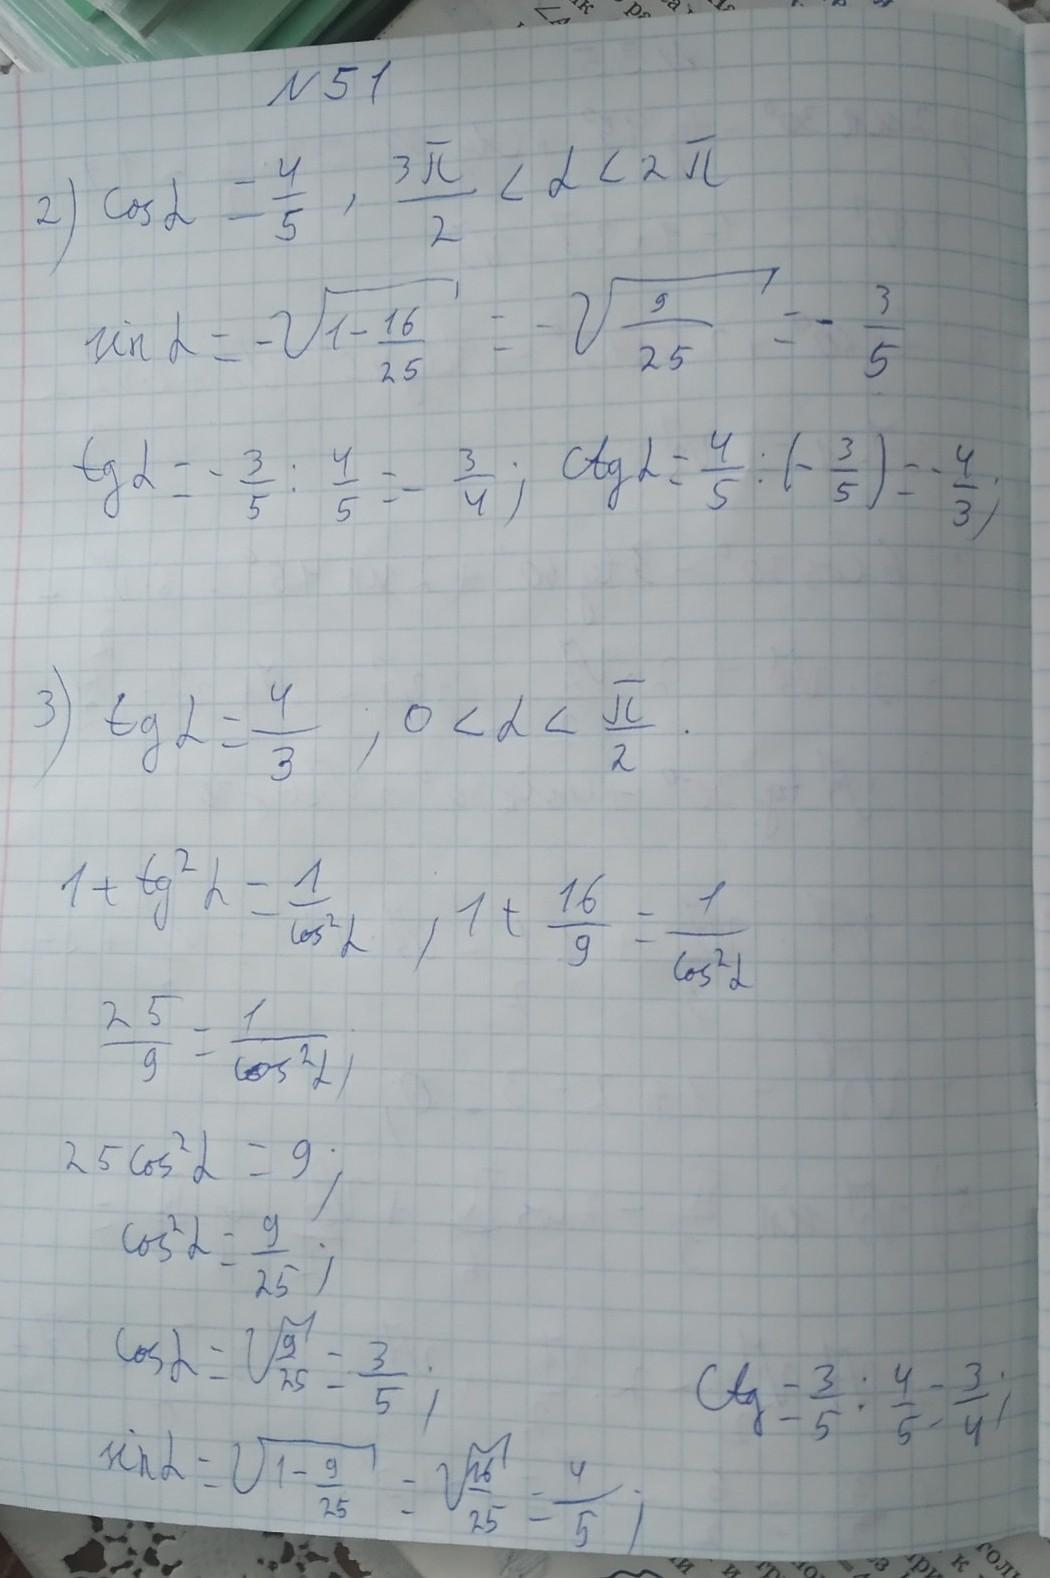 N51
2) cos α = 4/5 , 3π/2 < α < 2π
sin α = -√(1 - 16/25) = -√(9/25) = - 3/5
tg α = - 3/5 : 4/5 = - 3/4 ; ctg α = 4/5 : (- 3/5) = - 4/3 ;
3) tg α = 4/3 ; 0 < α < π/2 .
1 + tg² α = 1/cos² α , 1 + 16/9 = 1/cos² α
25/9 = 1/cos² α ;
25 cos² α = 9 ;
cos² α = 9/25 ;
cos α = √(9/25) = 3/5 ;
ctg = 3/5 : 4/5 = 3/4 ;
sin α = √(1 - 9/25) = √(16/25) = 4/5 ;